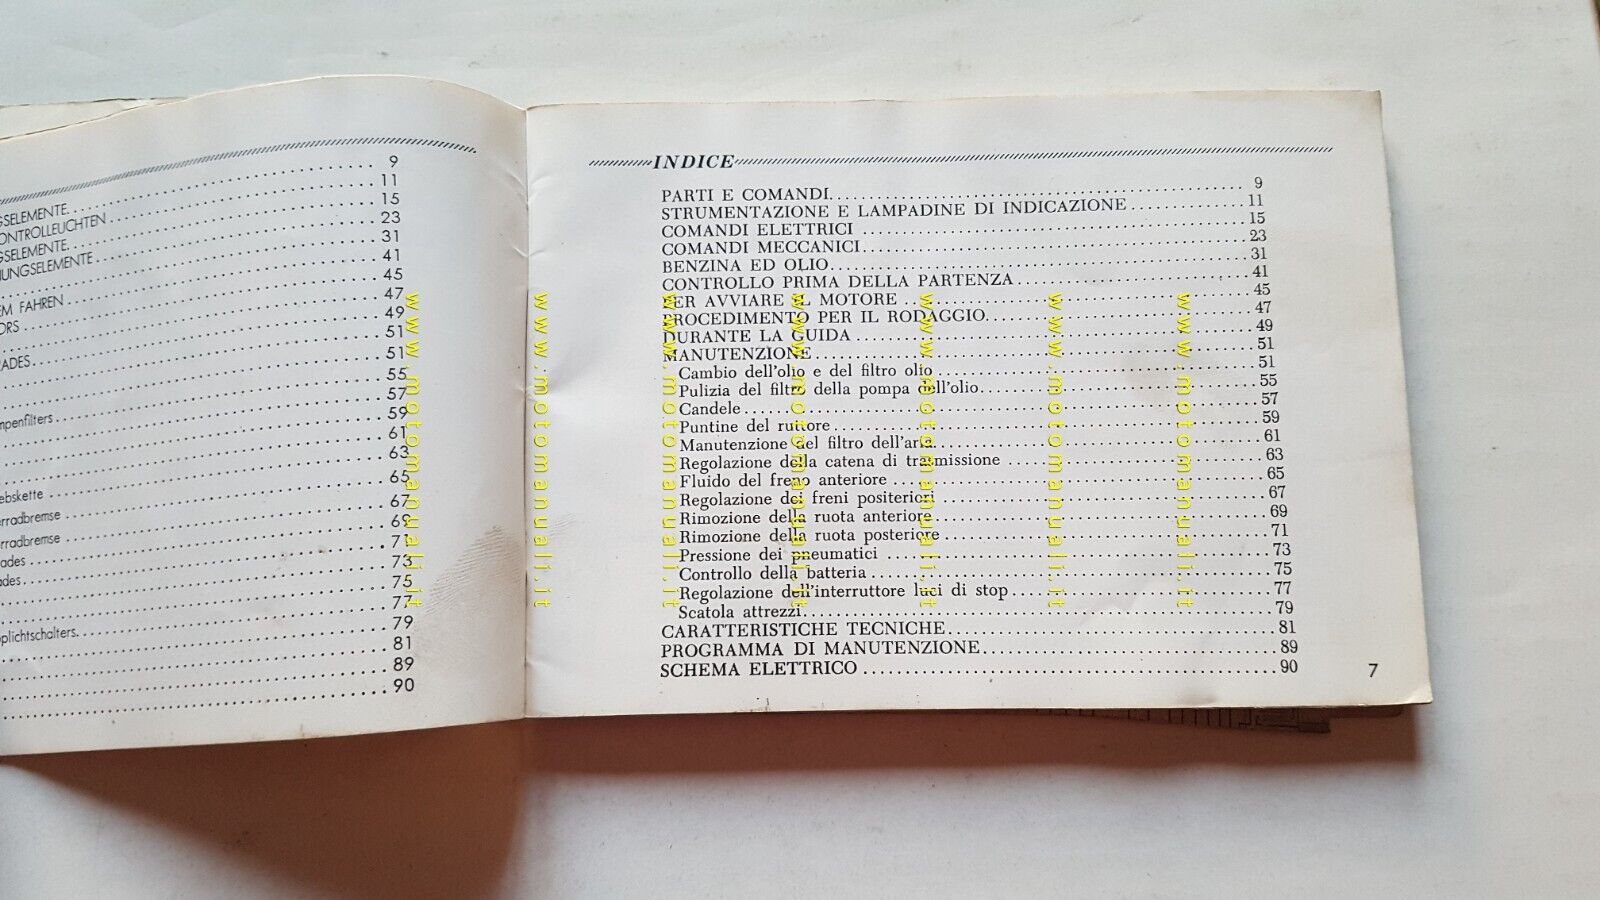 9
GSELEMENTE 11
CONTROLLEUCHTEN 15
GSELEMENTE 23
NUNGSELEMENTE 31
41
EM FAHREN 45
ORS 47
49
RADES 51
51
55
mpenfilters 57
59
61
63
ebskette 65
erradbremse 67
69
erradbremse 71
ades 73
ades 75
77
pplichtschalters 79
81
89
90
INDICE
PARTI E COMANDI 9
STRUMENTAZIONE E LAMPADINE DI INDICAZIONE 11
COMANDI ELETTRICI 15
COMANDI MECCANICI 23
BENZINA ED OLIO 31
CONTROLLO PRIMA DELLA PARTENZA 41
PER AVVIARE IL MOTORE 45
PROCEDIMENTO PER IL RODAGGIO 47
DURANTE LA GUIDA 49
MANUTENZIONE 51
Cambio dell'olio e del filtro olio 51
Pulizia del filtro della pompa dell'olio 55
Candele 57
Puntine del ruttore 59
Manutenzione del filtro dell'aria 61
Regolazione della catena di trasmissione 63
Fluido del freno anteriore 65
Regolazione dei freni positeriori 67
Rimozione della ruota anteriore 69
Rimozione della ruota posteriore 71
Pressione dei pneumatici 73
Controllo della batteria 75
Regolazione dell'interruttore luci di stop 77
Scatola attrezzi 79
CARATTERISTICHE TECNICHE 81
PROGRAMMA DI MANUTENZIONE 89
SCHEMA ELETTRICO 90
7
www.motomanuali.it
www.motomanuali.it
www.motomanuali.it
www.motomanuali.it
www.motomanuali.it
www.motomanuali.it
www.motomanuali.it